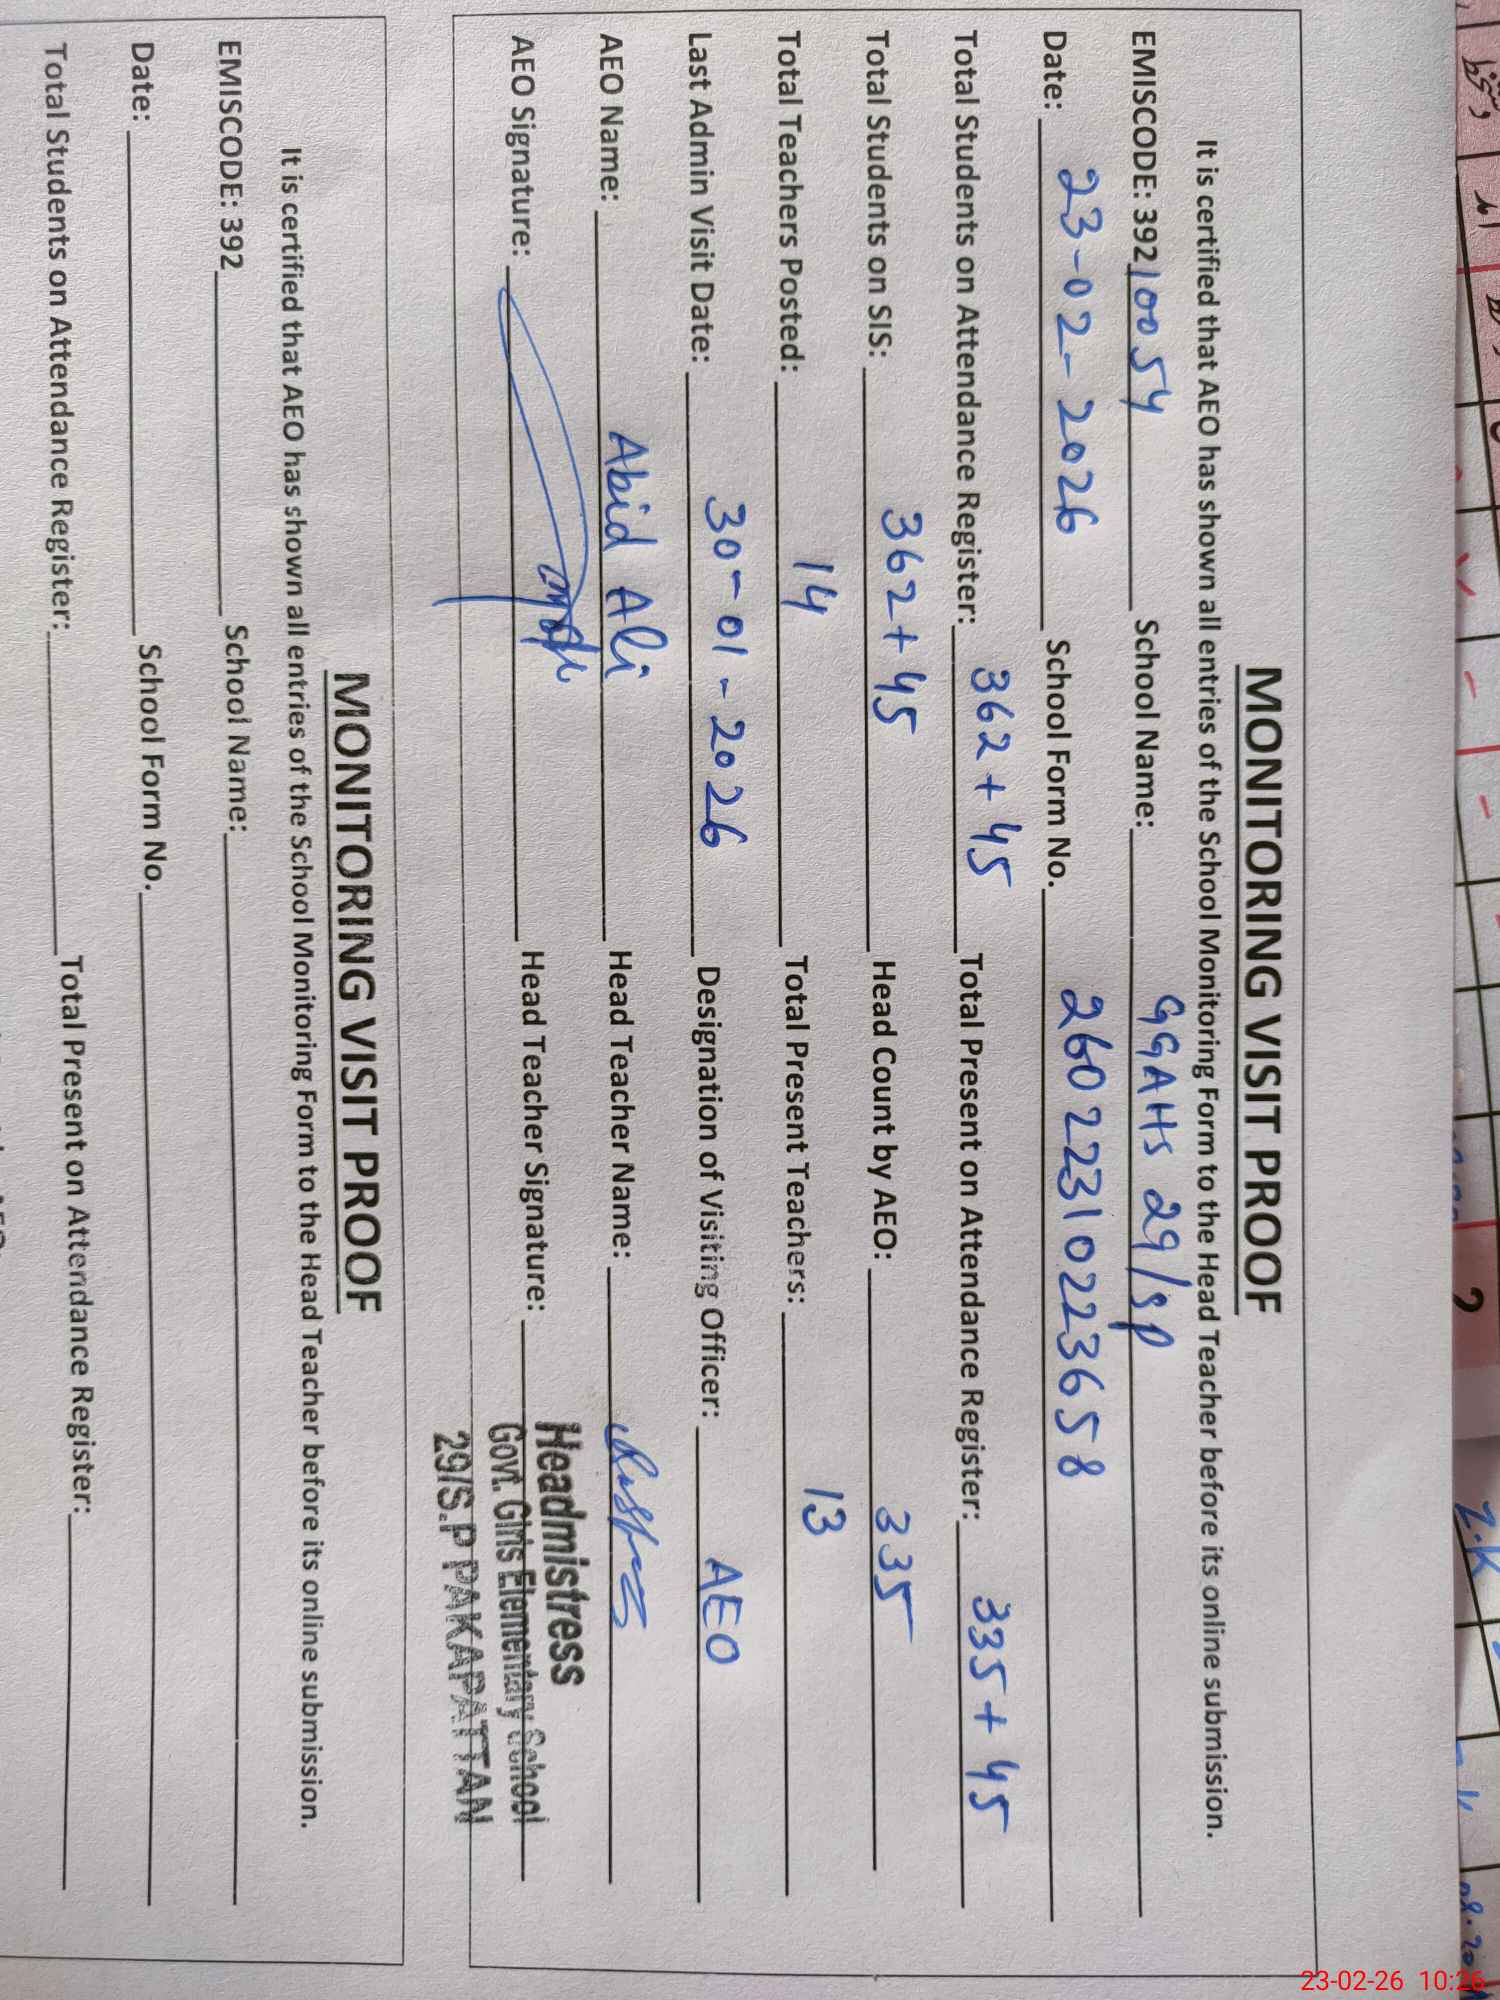 MONITORING VISIT PROOF
It is certified that AEO has shown all entries of the School Monitoring Form to the Head Teacher before its online submission.
EMISCODE: 39210054 School Name: GGAHS 29/SP
Date: 23-02-2026 School Form No. 260223102233658
Total Students on Attendance Register: 362+45 Total Present on Attendance Register: 335+45
Total Students on SIS: 362+45 Head Count by AEO: 335
Total Teachers Posted: 14 Total Present Teachers: 13
Last Admin Visit Date: 30-01-2026 Designation of Visiting Officer: AEO
AEO Name: Abid Ali Head Teacher Name:
AEO Signature: Head Teacher Signature:
Headmistress
Govt. Girls Elementary School
29/S.P PAKAPATTAN
MONITORING VISIT PROOF
It is certified that AEO has shown all entries of the School Monitoring Form to the Head Teacher before its online submission.
EMISCODE: 392 School Name:
Date: School Form No.
Total Students on Attendance Register: Total Present on Attendance Register:
23-02-26 10:26